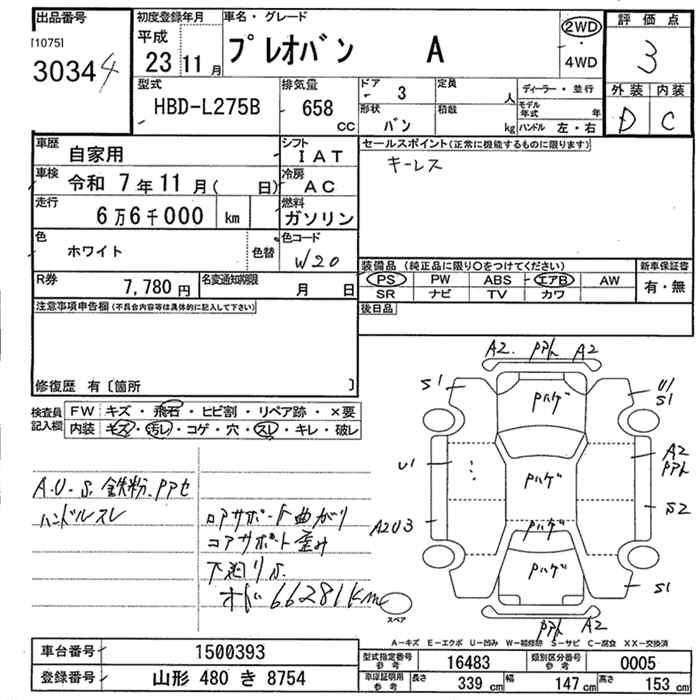 出品番号
[1075]
30344
初度登録年月
平成
23 11月
車名・グレード
プレオバン A
2WD
・
4WD
評価点
3
外装 内装
D C
型式
HBD-L275B
排気量
658
CC
ドア 3
形状
バン
定員
人
積載
kg
ディーラー・並行
モデル年式 年
ハンドル 左・右
車歴
自家用
シフト
IAT
車検 令和 7年11月( 日)
冷房
AC
走行
6万6千000 km
燃料
ガソリン
色
ホワイト
色替
色コード
W20
R券
7,780円
名変通知期限
月 日
セールスポイント(正常に機能するものに限ります)
キーレス
装備品 (純正品に限り〇をつけてください)
PS PW ABS エアB AW
SR ナビ TV カワ
新車保証書
有・無
後日品
注意事項申告欄(不具合内容等は具体的に記入して下さい)
修復歴 有〔箇所 〕
検査員記入欄
FW キズ・飛石・ヒビ割・リペア跡・×要
内装 キズ・汚レ・コゲ・穴・スレ・キレ・破レ
A.U-S.鉄粉.PPセ
ハンドルスレ
ロアサポート曲がり
コアサポート歪み
下廻りS.
オド66281Km
A2. PPト A2
S1
U1
S1
Pハゲ
U1
A2
PPト
Pハゲ
S2
A2U3
Pハゲ
Pハゲ
S1
PPト A2
スペア
A-キズ E-エクボ U-凹ミ W-補修跡 S-サビ C-腐食 XX-交換済
車台番号
1500393
登録番号
山形 480 き 8754
型式指定番号
参考
16483
類別区分番号
参考
0005
車庫証明用
参考
長さ 339cm
幅 147cm
高さ 153cm